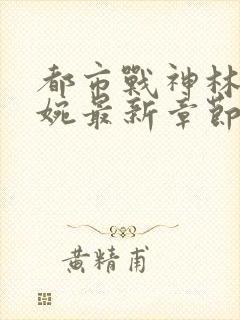 都市戰神林
婉最新章節
黄精甫